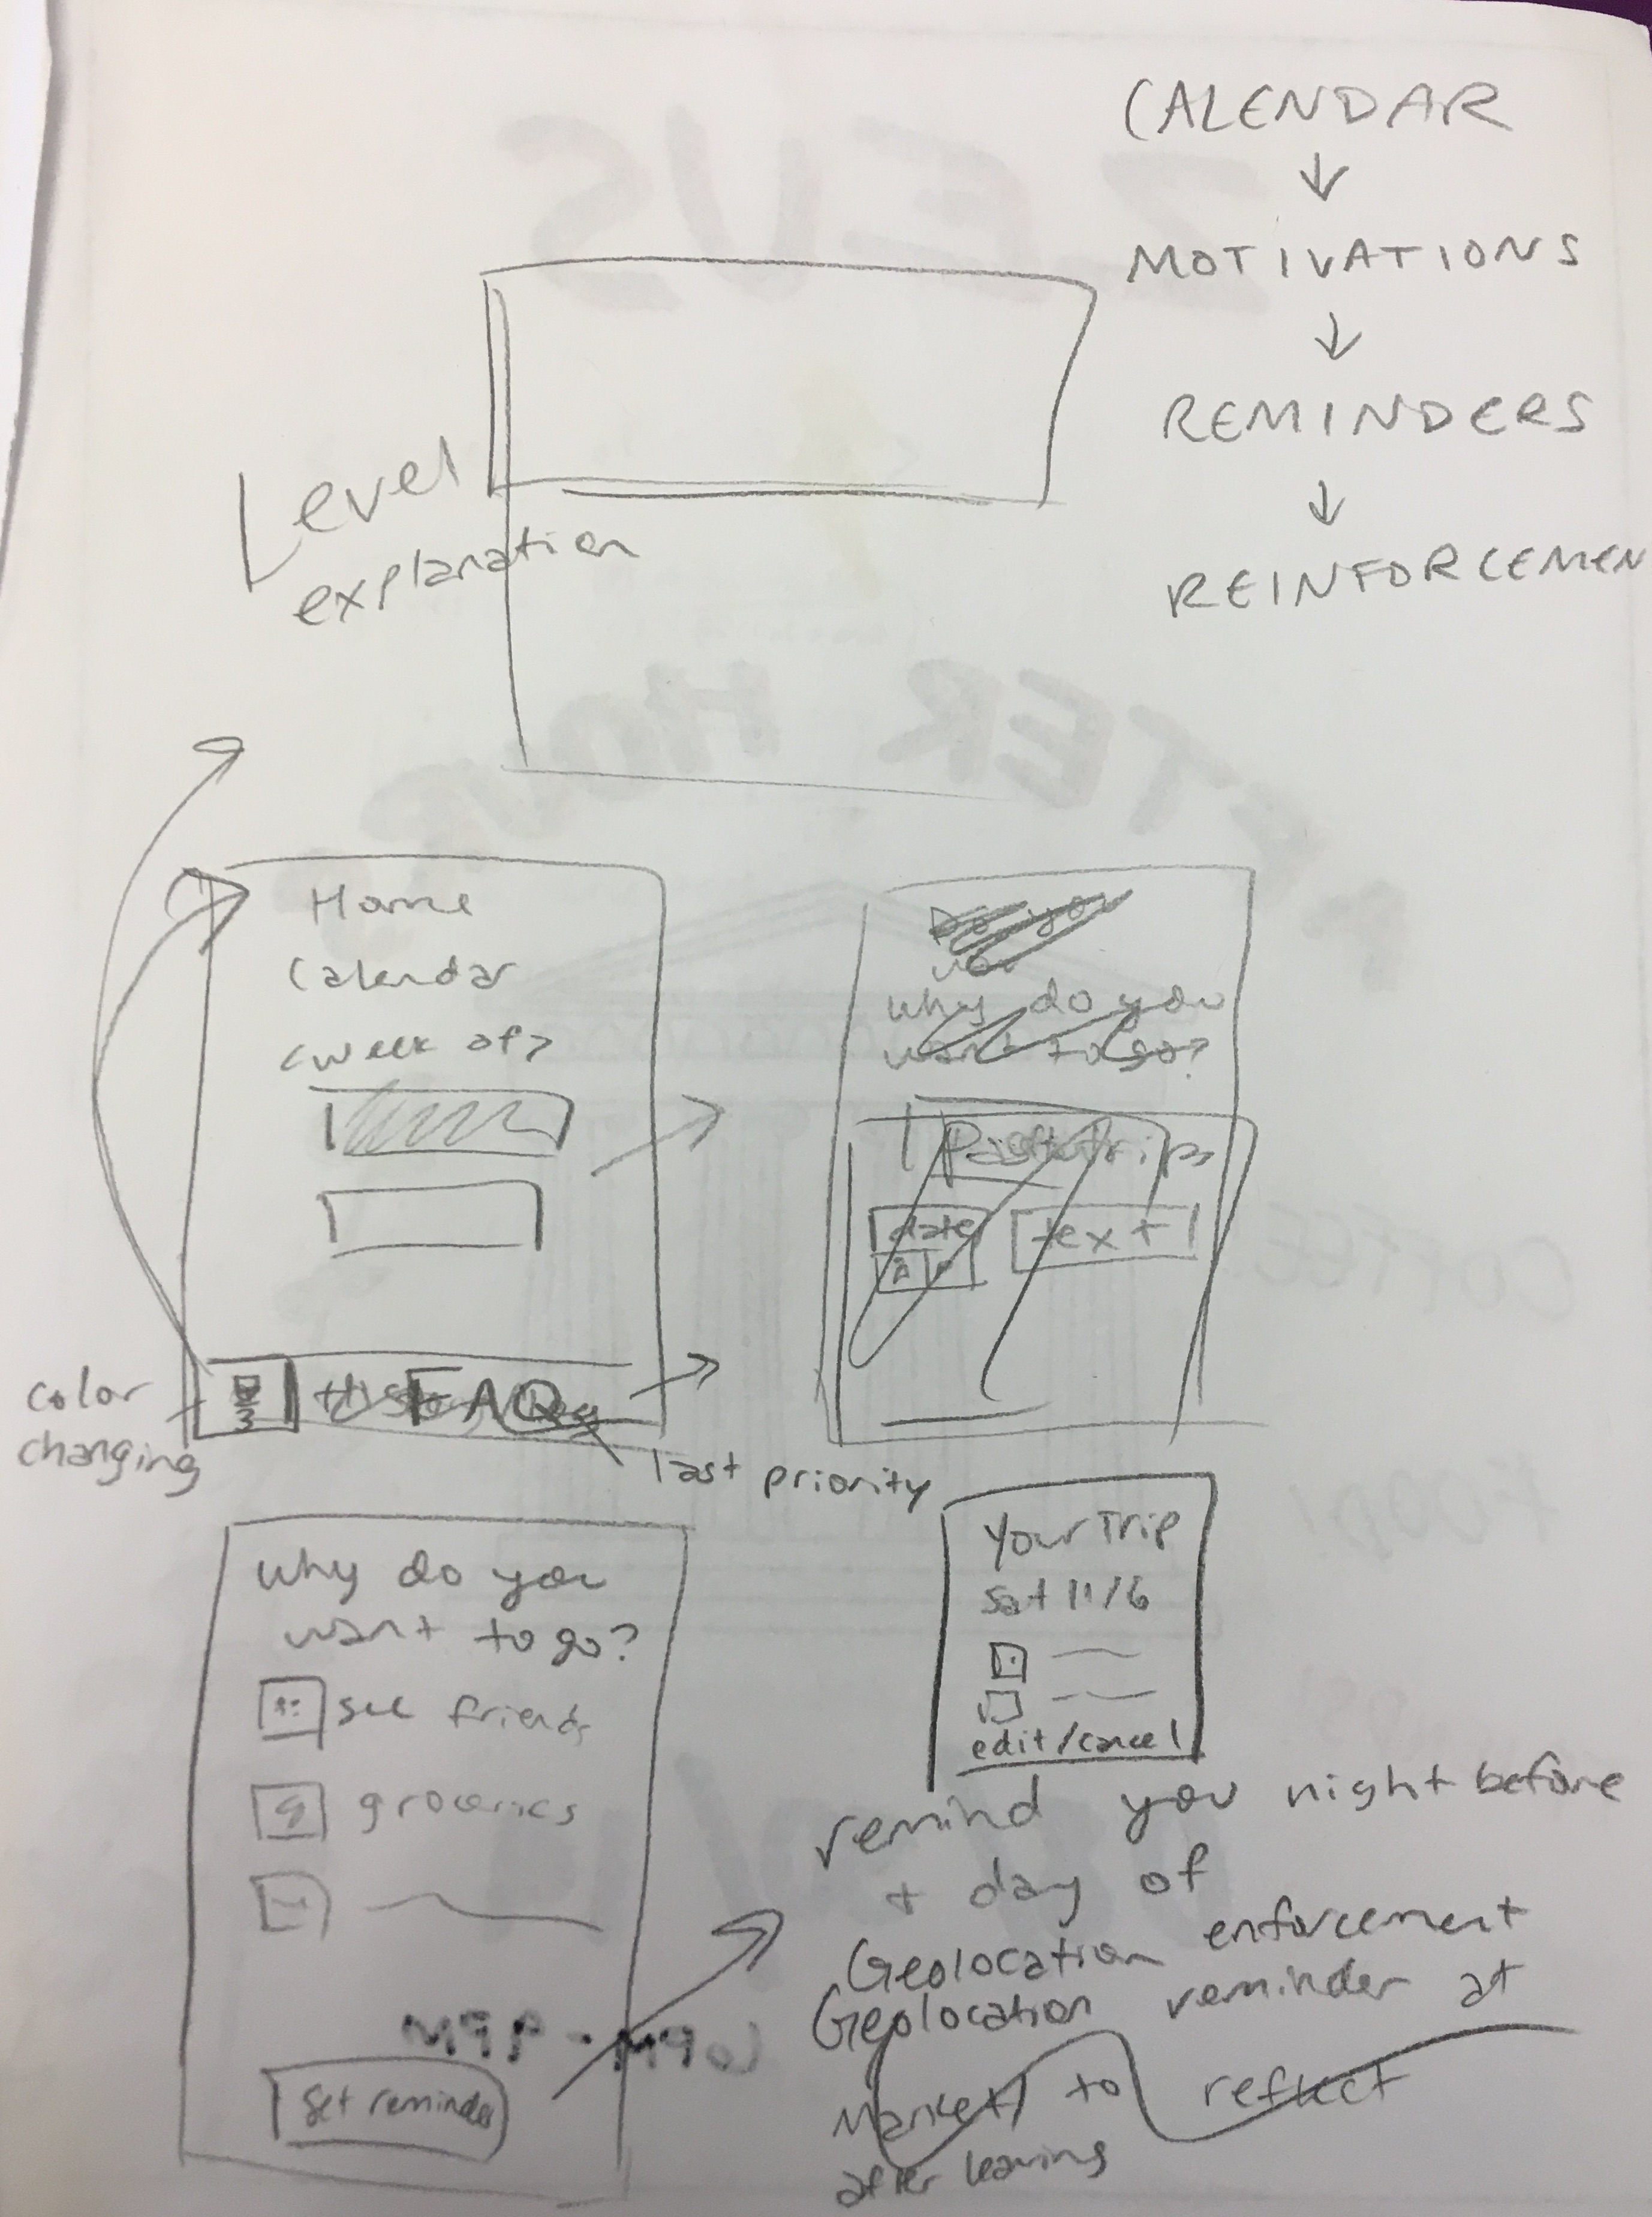 CALENDAR
↓
MOTIVATIONS
↓
REMINDERS
↓
REINFORCEMEN
Level
explanation
Home
Calendar
<week of>
color
changing
3
FAQ
last priority
Why do you
want to go?
Past trips
date
text
Why do you
want to go?
see friends
groceries
Set reminder
Your Trip
Sat 11/6
edit/cancel
remind you night before
+ day of
Geolocation enforcement
Geolocation reminder at
Market to reflect
after leaving
ZEUS
AFTER HOURS
COFFEE
FOOD!
6PM - 9PM